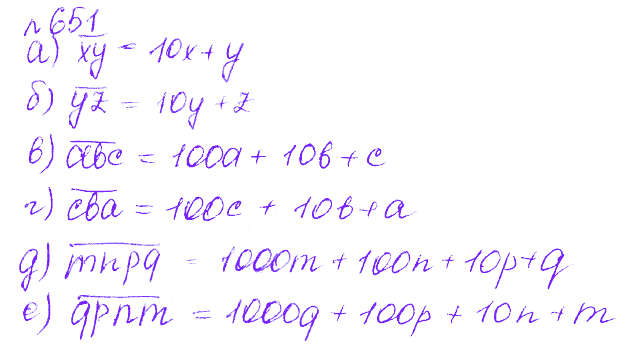 №651
а) x̅y̅ = 10x + y
б) y̅z̅ = 10y + z
в) a̅b̅c̅ = 100a + 10b + c
г) c̅b̅a̅ = 100c + 10b + a
д) m̅n̅p̅q̅ = 1000m + 100n + 10p + q
е) q̅p̅n̅m̅ = 1000q + 100p + 10n + m